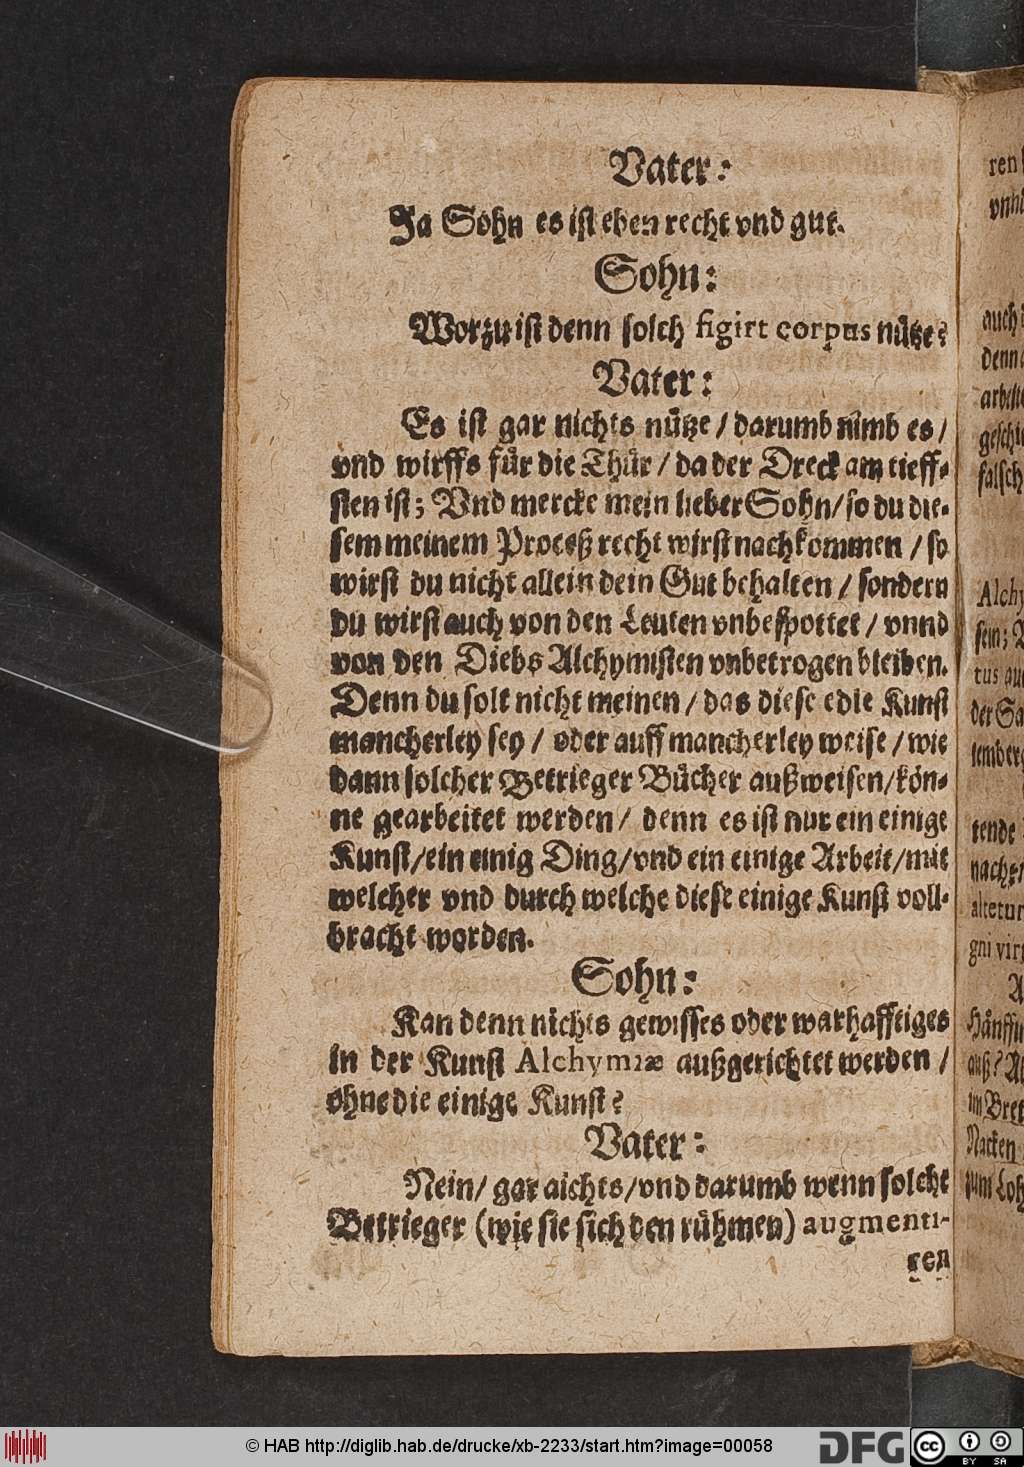 Vater:
Ja Sohn es ist eben recht vnd gut.
Sohn:
Worzu ist denn solch figirt corpus nütze?
Vater:
Es ist gar nichts nütze / darumb nimb es /
vnd wirffs für die Thür / da der Dreck am tieff-
sten ist; Vnd mercke mein lieber Sohn / so du die-
sem meinem Proceß recht wirst nachkommen / so
wirst du nicht allein dein Gut behalten / sondern
du wirst auch von den Leuten vnbespottet / vnnd
von den Diebs Alchymisten vnbetrogen bleiben.
Denn du solt nicht meinen / das diese edle Kunst
mancherley sey / oder auff mancherley weise / wie
dann solcher Betrieger Bücher außweisen / kön-
ne gearbeitet werden / denn es ist nur ein einige
Kunst / ein einig Ding / vnd ein einige Arbeit / mit
welcher vnd durch welche diese einige Kunst voll-
bracht worden.
Sohn:
Kan denn nichts gewisses oder warhafftiges
in der Kunst Alchymiæ außgerichtet werden /
ohne die einige Kunst?
Vater:
Nein / gar nichts / vnd darumb wenn solche
Betrieger (wie sie sich den rühmen) augmenti-
ren
auch
denn
arbeite
falsch
Alchy
sein;
tus
der Sa
tende
gni vir
Nacken
zum Loh
© HAB http://diglib.hab.de/drucke/xb-2233/start.htm?image=00058
DFG
cc
BY SA